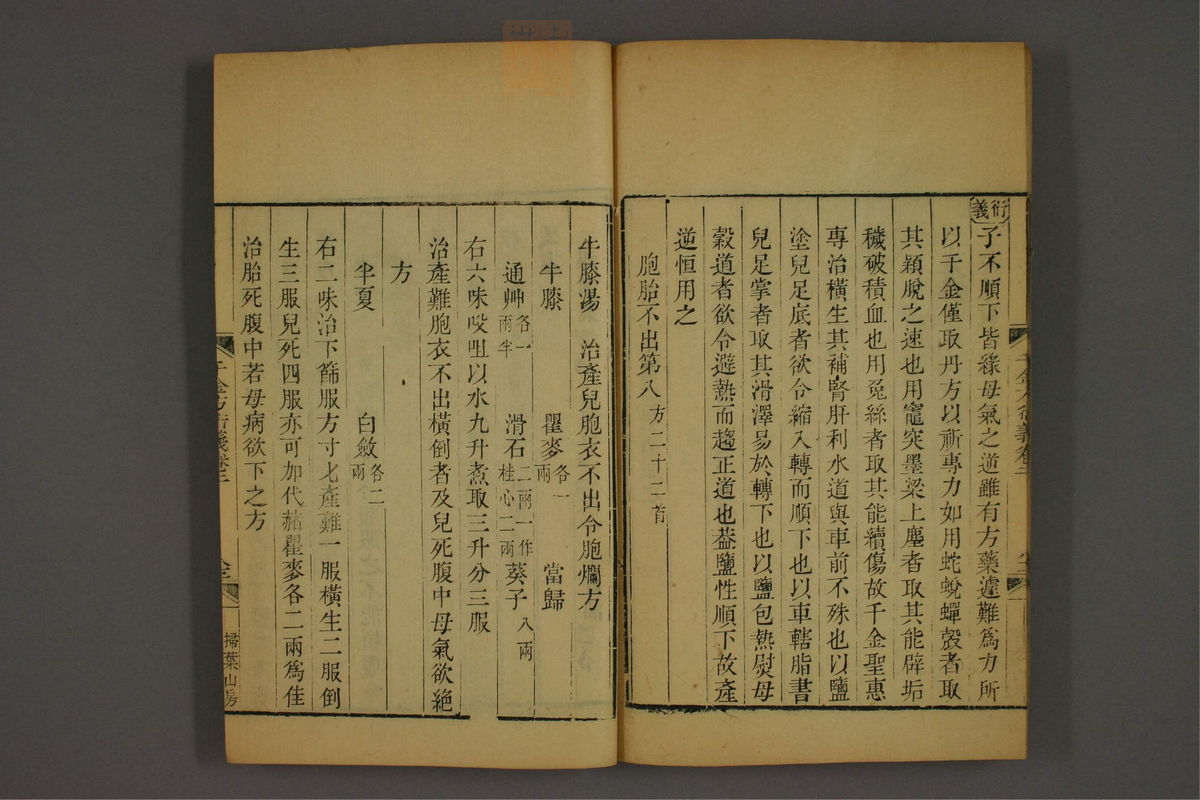 衍義
子不順下皆緣母氣之逆雖有方藥遽難為力所
以千金僅取丹方以祈專力如用蛇蛻蟬殼者取
其穎脫之速也用竈突墨梁上塵者取其能辟垢
穢破積血也用兔絲者取其能續傷故千金聖惠
專治橫生其補腎肝利水道與車前不殊也以鹽
塗兒足底者欲令縮入轉而順下也以車轄脂書
兒足掌者取其滑澤易於轉下也以鹽包熱熨母
穀道者欲令避熱而趨正道也葢鹽性順下故產
逆恒用之
胞胎不出第八 方二十二首
牛膝湯 治產兒胞衣不出令胞爛方
牛膝 瞿麥各一兩 當歸
通艸各一兩半 滑石二兩一作桂心二兩 葵子八兩
右六味㕮咀以水九升煮取三升分三服
治產難胞衣不出橫倒者及兒死腹中母氣欲絕
方
半夏 白斂各二兩
右二味治下篩服方寸匕產難一服橫生二服倒
生三服兒死四服亦可加代赭瞿麥各二兩為佳
治胎死腹中若母病欲下之方
千金方衍義卷二
掃葉山房